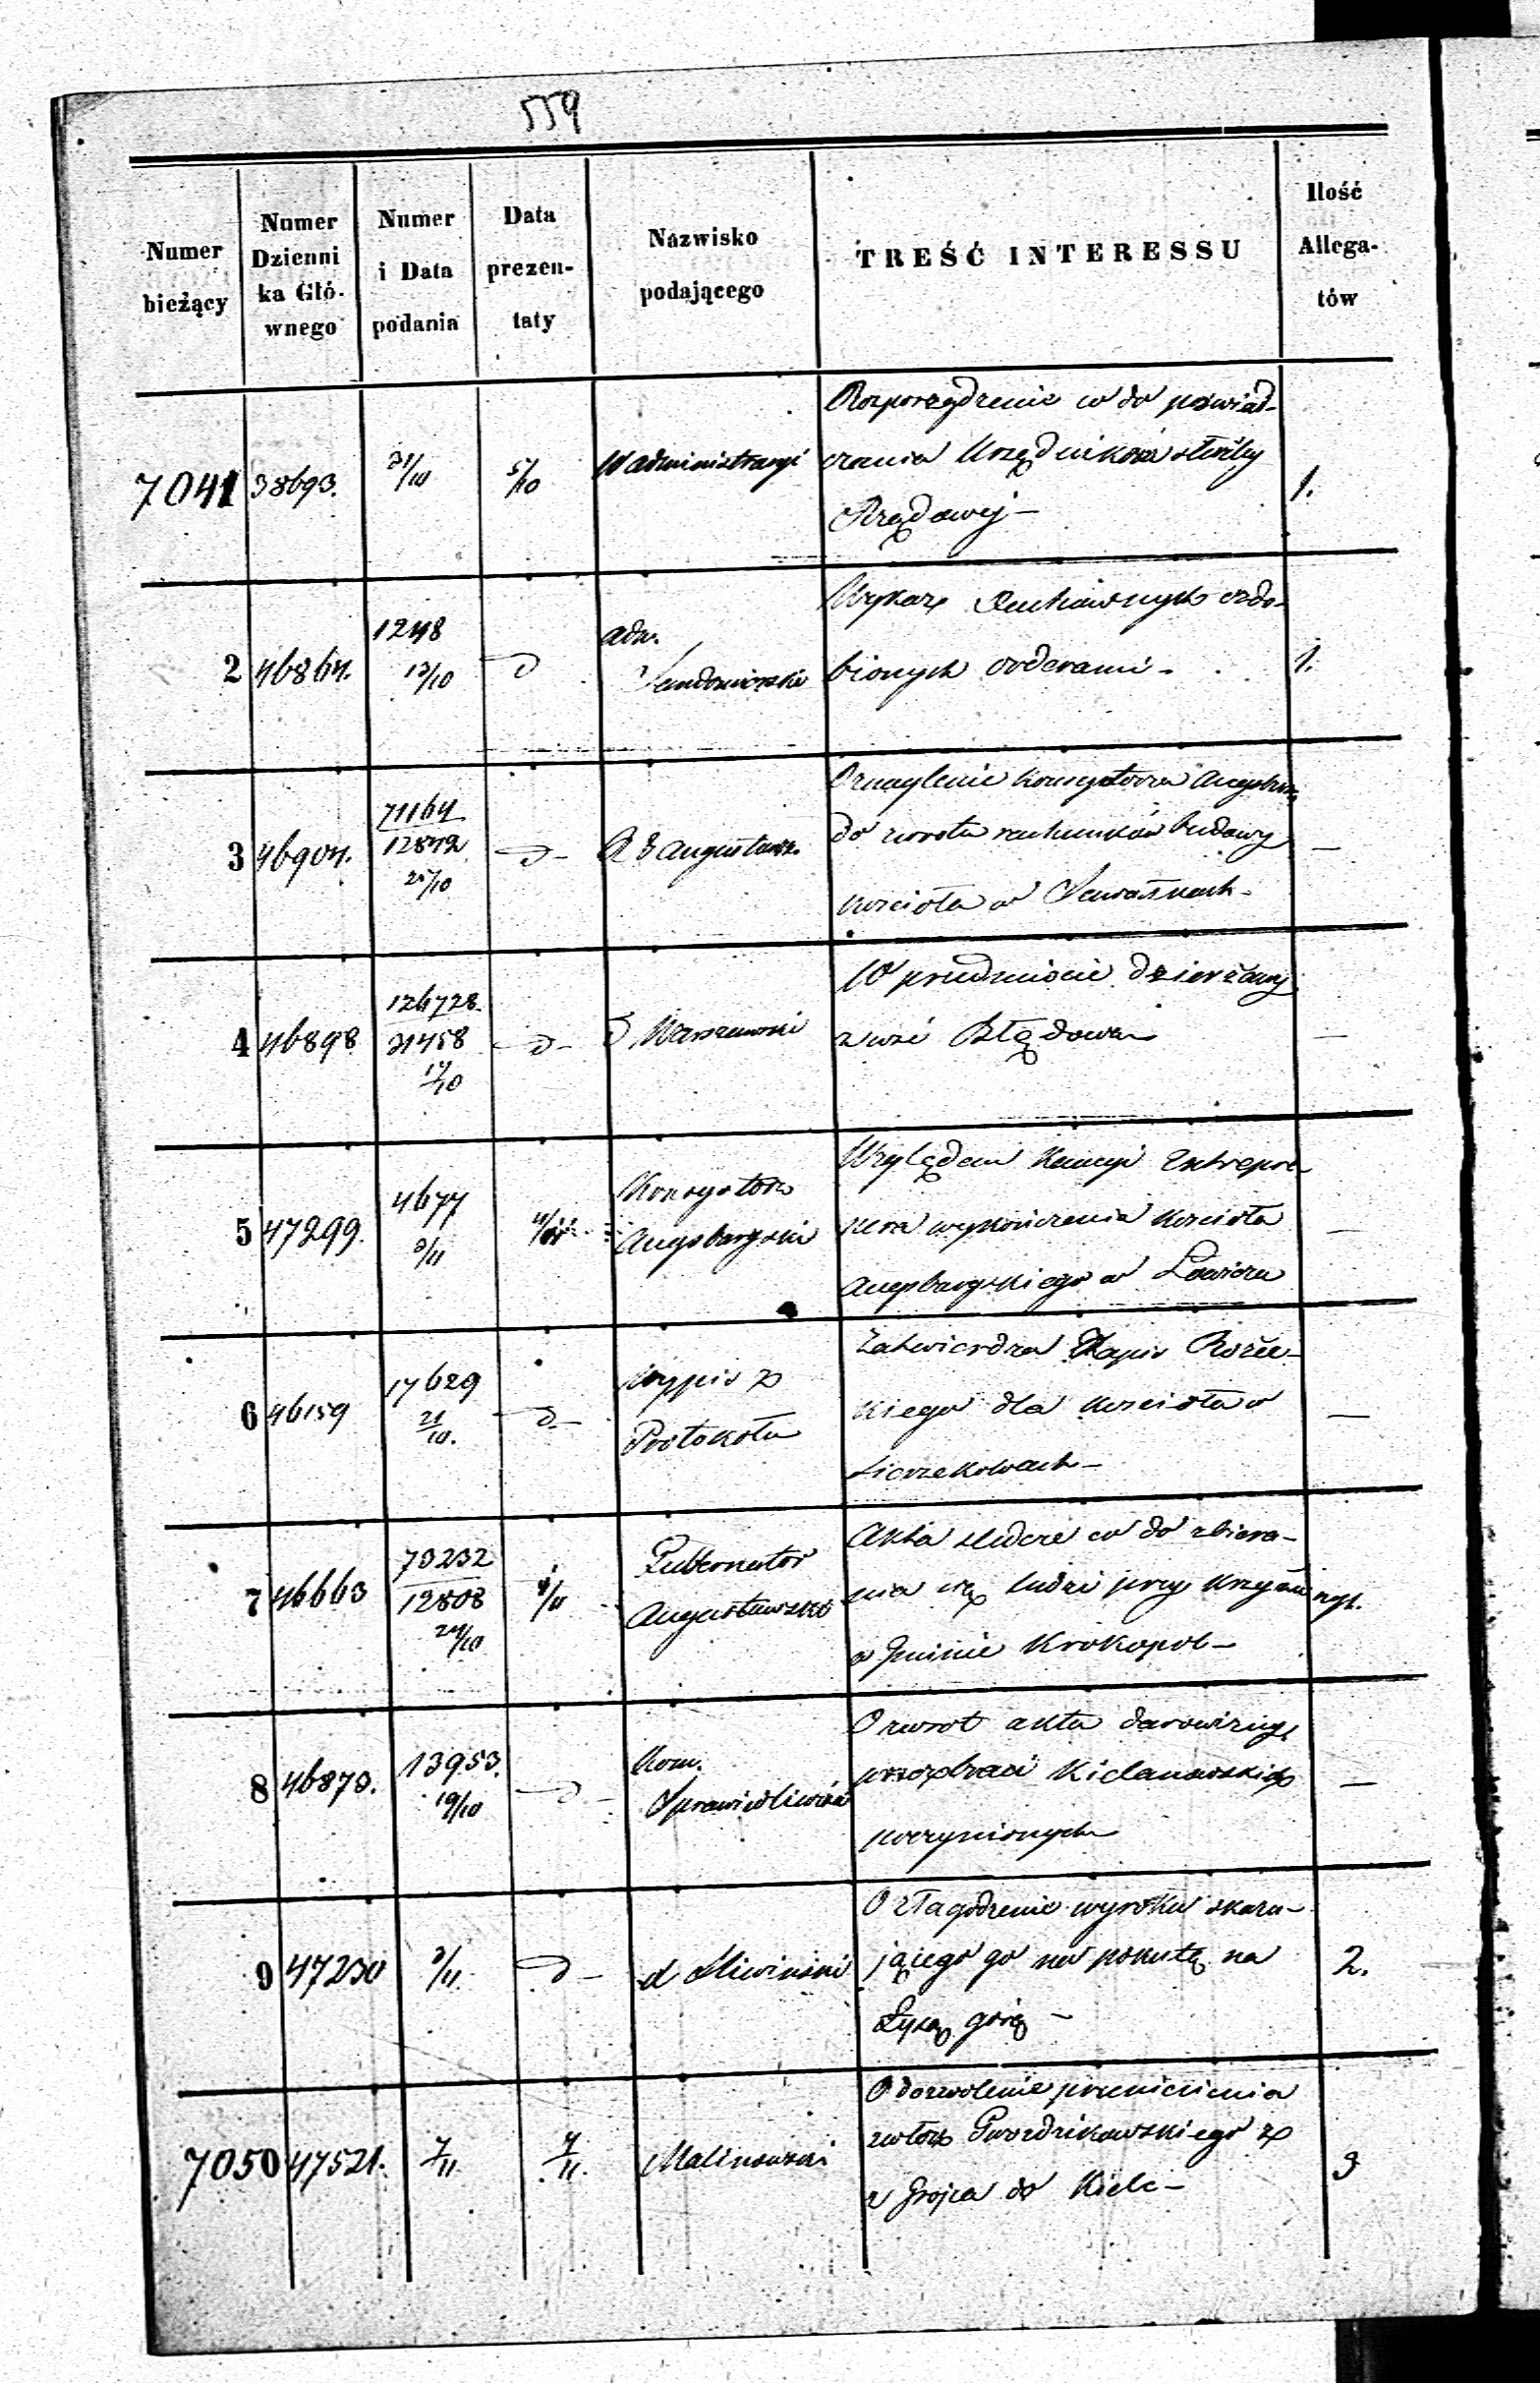 559
Numer bieżący
Numer Dzienni ka Głó- wnego
Numer i Data podania
Data prezen- taty
Nazwisko podającego
TREŚĆ INTERESSU
Ilość Allega- tów
7041 38693. 31/10 5/10 W administracyi
Rozporządzenie co do poświad-
czenia Urzędników służby
Rządowej –
1.
2 46864. 1248 13/10 d
adm. Sandomierski
Wykaz Duchownych ozdo-
bionych orderami –
1.
3 46904. 71164 12842 25/10 – d –
R G Augustows.
O naglenie Konsystorza Augsburs.
do zwrotu rachunków budowy
kościoła w
–
4 46898 126728. 31458 17/10 – d –
G Warszawski
W przedmiocie dzierżawy
z wsi Błędowa
–
5 47299. 4677 3/11
Konsystorz
Augsburgski
Względem Kaucyi Entrepre
nera wykończenia kościoła
augsburgskiego w Łowiczu
–
6 46159 17629 21/10. – d –
Wypis z
Protokołu
Zatwierdza Zapis
kiego dla kościoła w
Sierzchowach –
–
7 46663 73232 12808 24/10
Gubernator
Augustowski
Akta śledcze co do zbiera-
nia się ludzi przy krzyżu
w Gminie Krokopol –
8 46873. 13953. 19/10 – d –
Kom.
Sprawiedliwości
O zwrot aktu darowizny
przez braci Kielanowskich
poczynionych
–
9 47230 3/11 – d –
d Śliwiński
O złagodzenie wyroku skazu-
jącego go na pokutę na
Łysą górę –
2.
7050 47521. 7/11 7/11.
Malinowski
O dozwolenie przeniesienia
zwłok Gwozdzikowskiego z
z Grojca do Kielc –
3